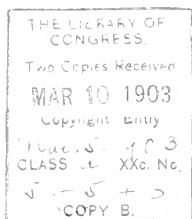 THE LIBRARY OF
CONGRESS.
Two Copies Received
MAR 10 1903
Copyright Entry
CLASS XXc. No.
COPY B.